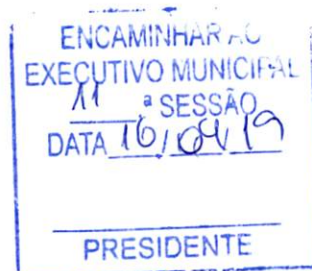 ENCAMINHAR AO
EXECUTIVO MUNICIPAL
11 ª SESSÃO
DATA 16/04/19
PRESIDENTE